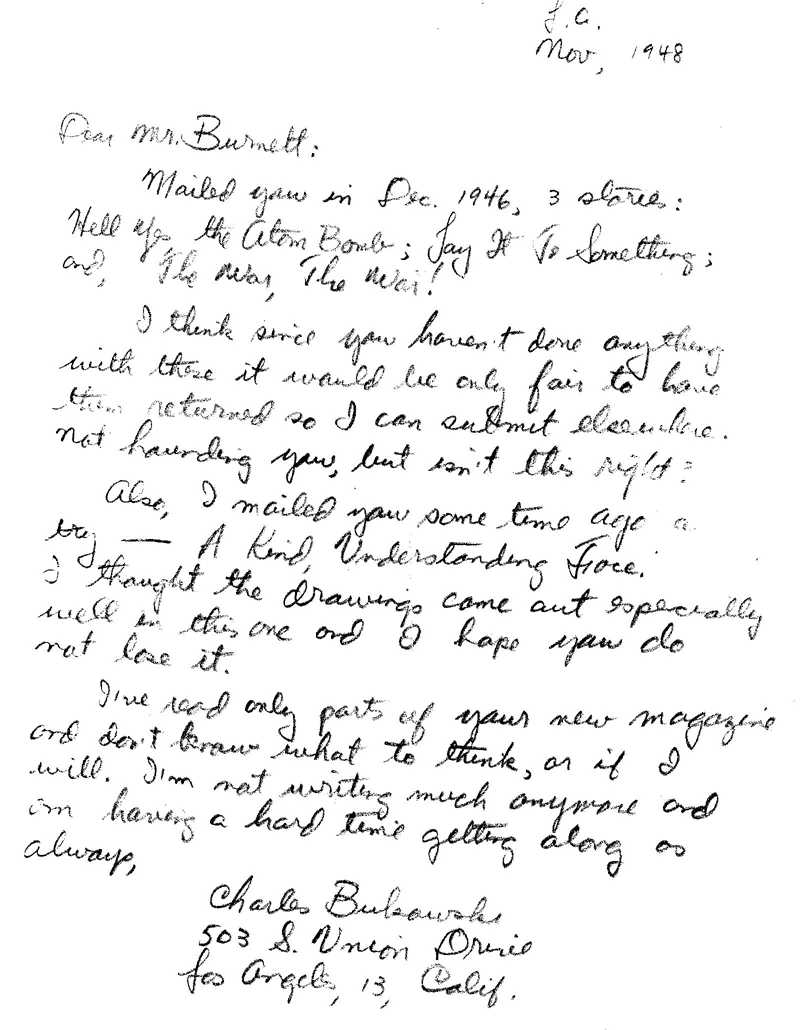 L.A.
Nov, 1948
Dear Mr. Burnett:
Mailed you in Dec. 1946, 3 stories:
Hell Yes, the Atom Bomb; Say It To Something;
and, The War, The War!
I think since you haven't done anything
with these it would be only fair to have
them returned so I can submit elsewhere.
not hounding you, but isn't this right?
Also, I mailed you some time ago a
try — A Kind, Understanding Face.
I thought the drawings came out especially
well in this one and I hope you do
not lose it.
I've read only parts of your new magazine
and don't know what to think, or if I
will. I'm not writing much anymore and
am having a hard time getting along as
always,
Charles Bukowski
503 S. Union Drive
Los Angeles, 13, Calif.